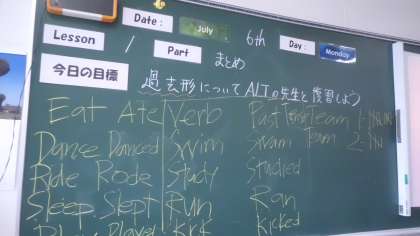 Date: July 6th Day: Monday
Lesson / Part まとめ
今日の目標 過去形についてALTの先生と復習しよう
Eat Ate Verb Past Team 1-
Dance Danced Swim Swam Team 2-
Ride Rode Study Studied
Sleep Slept Run Ran
Play Played Kick Kicked